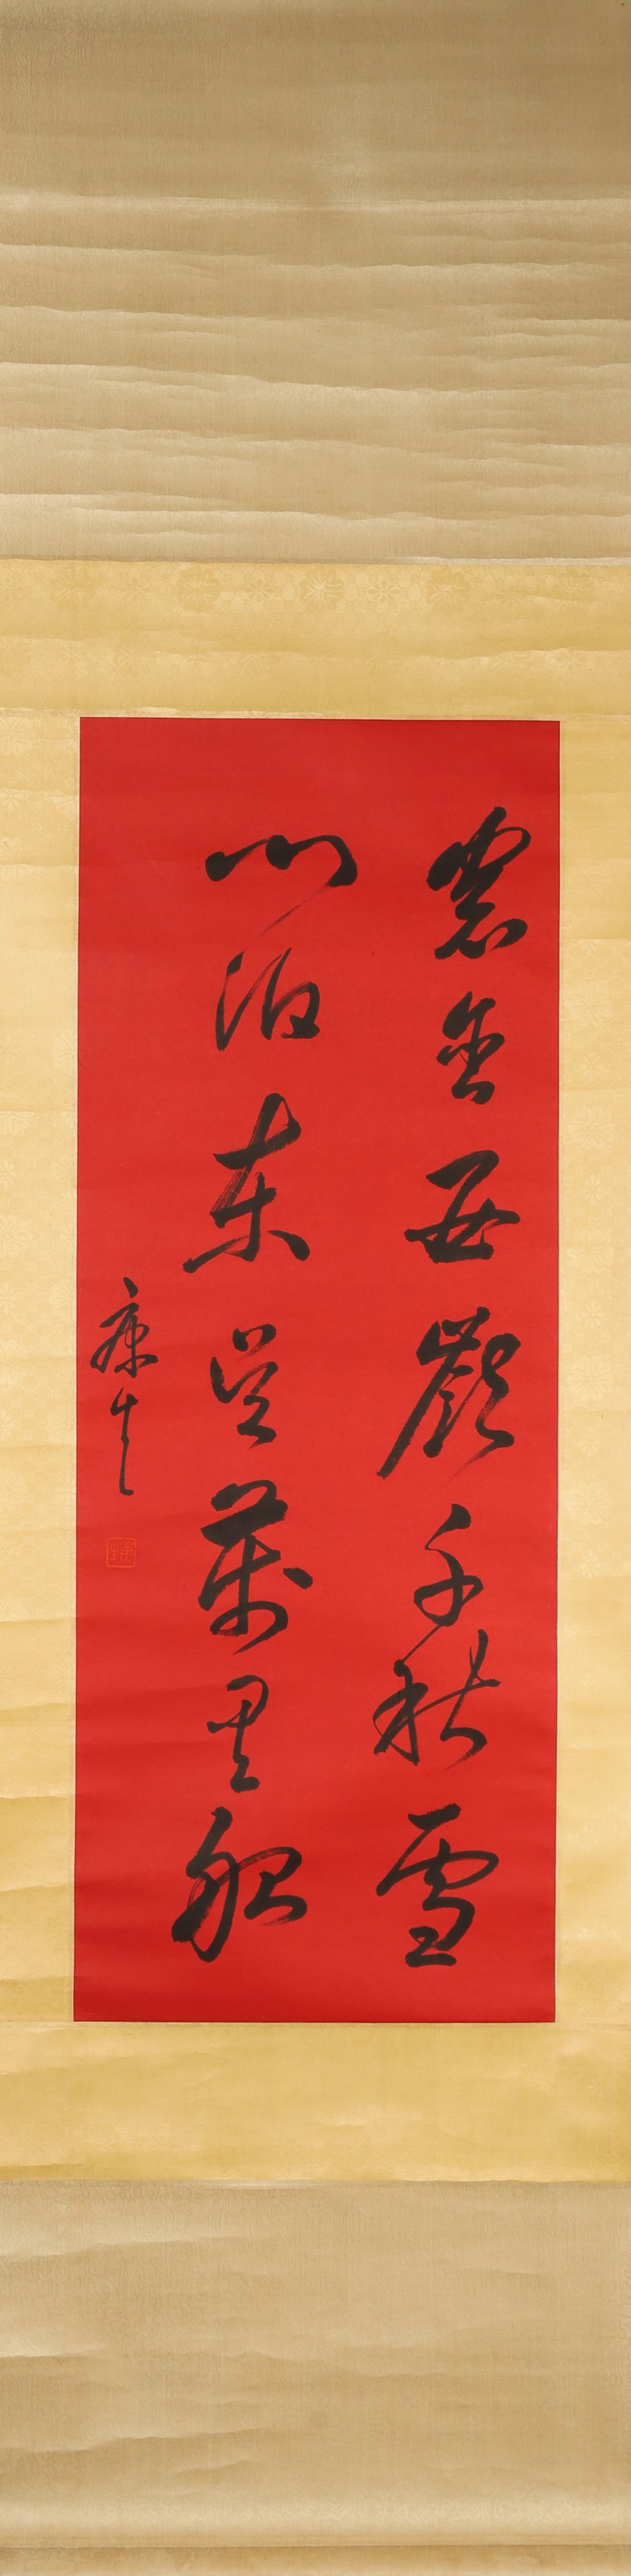 窗含西嶺千秋雪
門泊東吳萬里船
康生